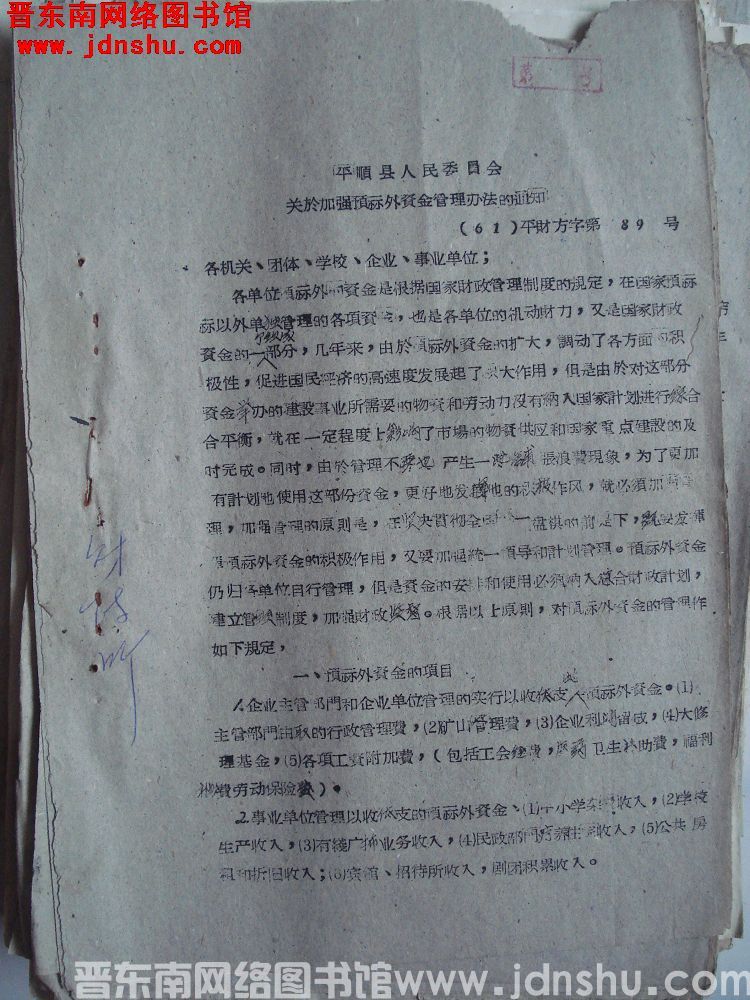 晋东南网络图书馆
www.jdnshu.com
第 号
平順县人民委員会
关於加强預祘外資金管理办法的通知
(61)平財方字第 89 号
各机关、团体、学校、企业、事业单位;
各单位預祘外的資金是根据国家財政管理制度的規定,在国家預祘
祘以外单独管理的各項資金,也是各单位的机动財力,又是国家財政
資金的一部分,几年来,由於預祘外資金的扩大,調动了各方面的积
极性,促进国民經济的高速度发展起了很大作用,但是由於对这部分
資金举办的建設事业所需要的物資和劳动力没有納入国家計划进行綜合
合平衡,就在一定程度上影响了市場的物資供应和国家重点建設的及
时完成。同时,由於管理不 产生一 張浪費現象,为了更加
有計划地使用这部份資金,更好地发 他的积极作风,就必須加
理,加强管理的原則是,在坚决貫彻全国一盘棋的前提下,既要发揮
預祘外資金的积极作用,又要加强統一領导和計划管理。預祘外資金
仍归各单位自行管理,但是資金的安排和使用必須納入总合財政計划,
建立管 制度,加强財政 。根据以上原則,对預祘外資金的管理作
如下規定,
一、預祘外資金的項目
1.企业主管部門和企业单位管理的实行以收 支 預祘外資金。(1)
主管部門由取的行政管理費,(2)矿山管理費,(3)企业利潤留成,(4)大修
理基金,(5)各項工資附加費,(包括工会經費,医藥卫生补助費,福利
費劳动保險費)。
2.事业单位管理以收 支的預祘外資金、(1)中小学杂費收入,(2)学校
生产收入,(3)有线广播业务收入,(4)民政部門 养 收入,(5)公共房
租和折旧收入;(6)宾館、招待所收入,剧团积累收入。
財
晋东南网络图书馆www.jdnshu.com